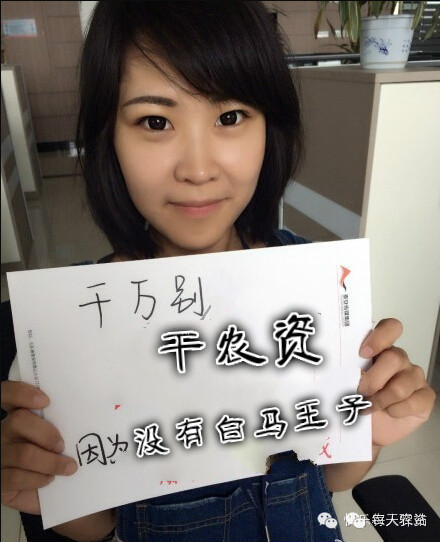 千万别
干农资
因为没有白马王子